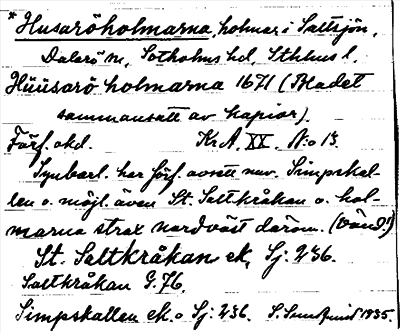 * Husaröholmarna, holmar i Saltsjön,
Dalarö sn, Sotholms hd, Sthlms l.
Hüüsarö holmarna 1671 (Bladet
sammansatt av kopior).
Förf. okd. Kr. A. XX. N:o 13.
Synbarl. har förf. avsett nuv. Simpskal-
len o. möjl. även St. Saltkråkan o. hol-
marna strax nordväst därom. (Vänd!)
St. Saltkråkan ek, Sj: 236.
Saltkråkan G. 76.
Simpskallen ek. o Sj: 236. 1935.